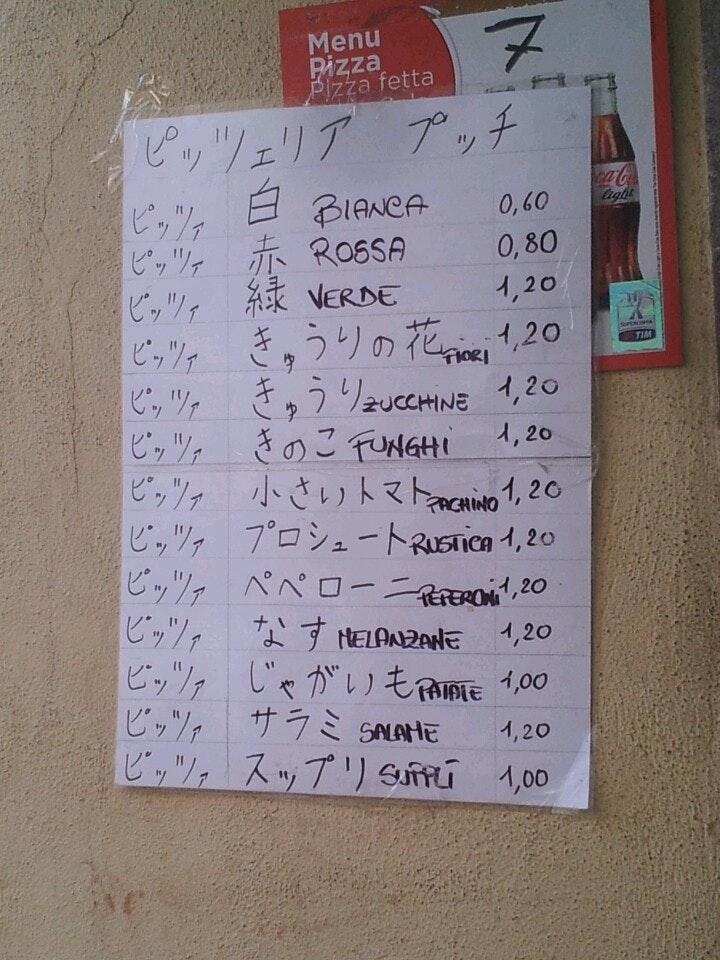 Menu
Pizza
Pizza fetta
7
ピッツェリア プッチ
ピッツァ 白 BIANCA 0,60
ピッツァ 赤 ROSSA 0,80
ピッツァ 緑 VERDE 1,20
ピッツァ きゅうりの花 FIORI 1,20
ピッツァ きゅうり ZUCCHINE 1,20
ピッツァ きのこ FUNGHi 1,20
ピッツァ 小さいトマト PACHINO 1,20
ピッツァ プロシュート RUSTICA 1,20
ピッツァ ペペローニ PEPERONi 1,20
ピッツァ なす MELANZANE 1,20
ピッツァ じゃがいも PATATE 1,00
ピッツァ サラミ SALAME 1,20
ピッツァ スップリ SUPPLÌ 1,00
Coca-Cola
light
SUPERCOPPA
TIM